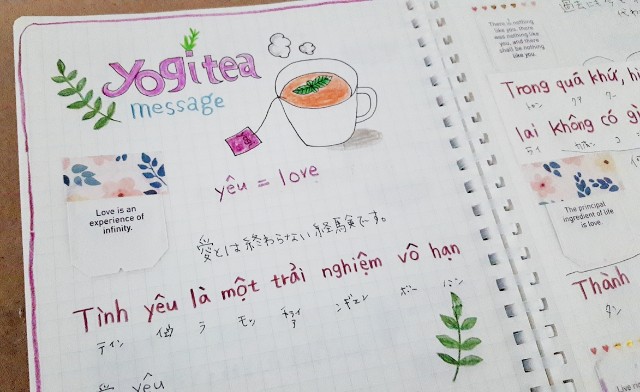 yogi tea
message
yêu = love
Love is an
experience of
infinity.
愛とは終わらない経験です。
Tình yêu là một trải nghiệm vô hạn
ティン ラ モッ ボー ハン
愛 yêu
There is nothing
like you, there
was nothing like
you, and there
shall be nothing
like you.
過去にも今
Trong quá khứ, hi
lai không có gi
The principal
ingredient of life
is love.
Thành
タン